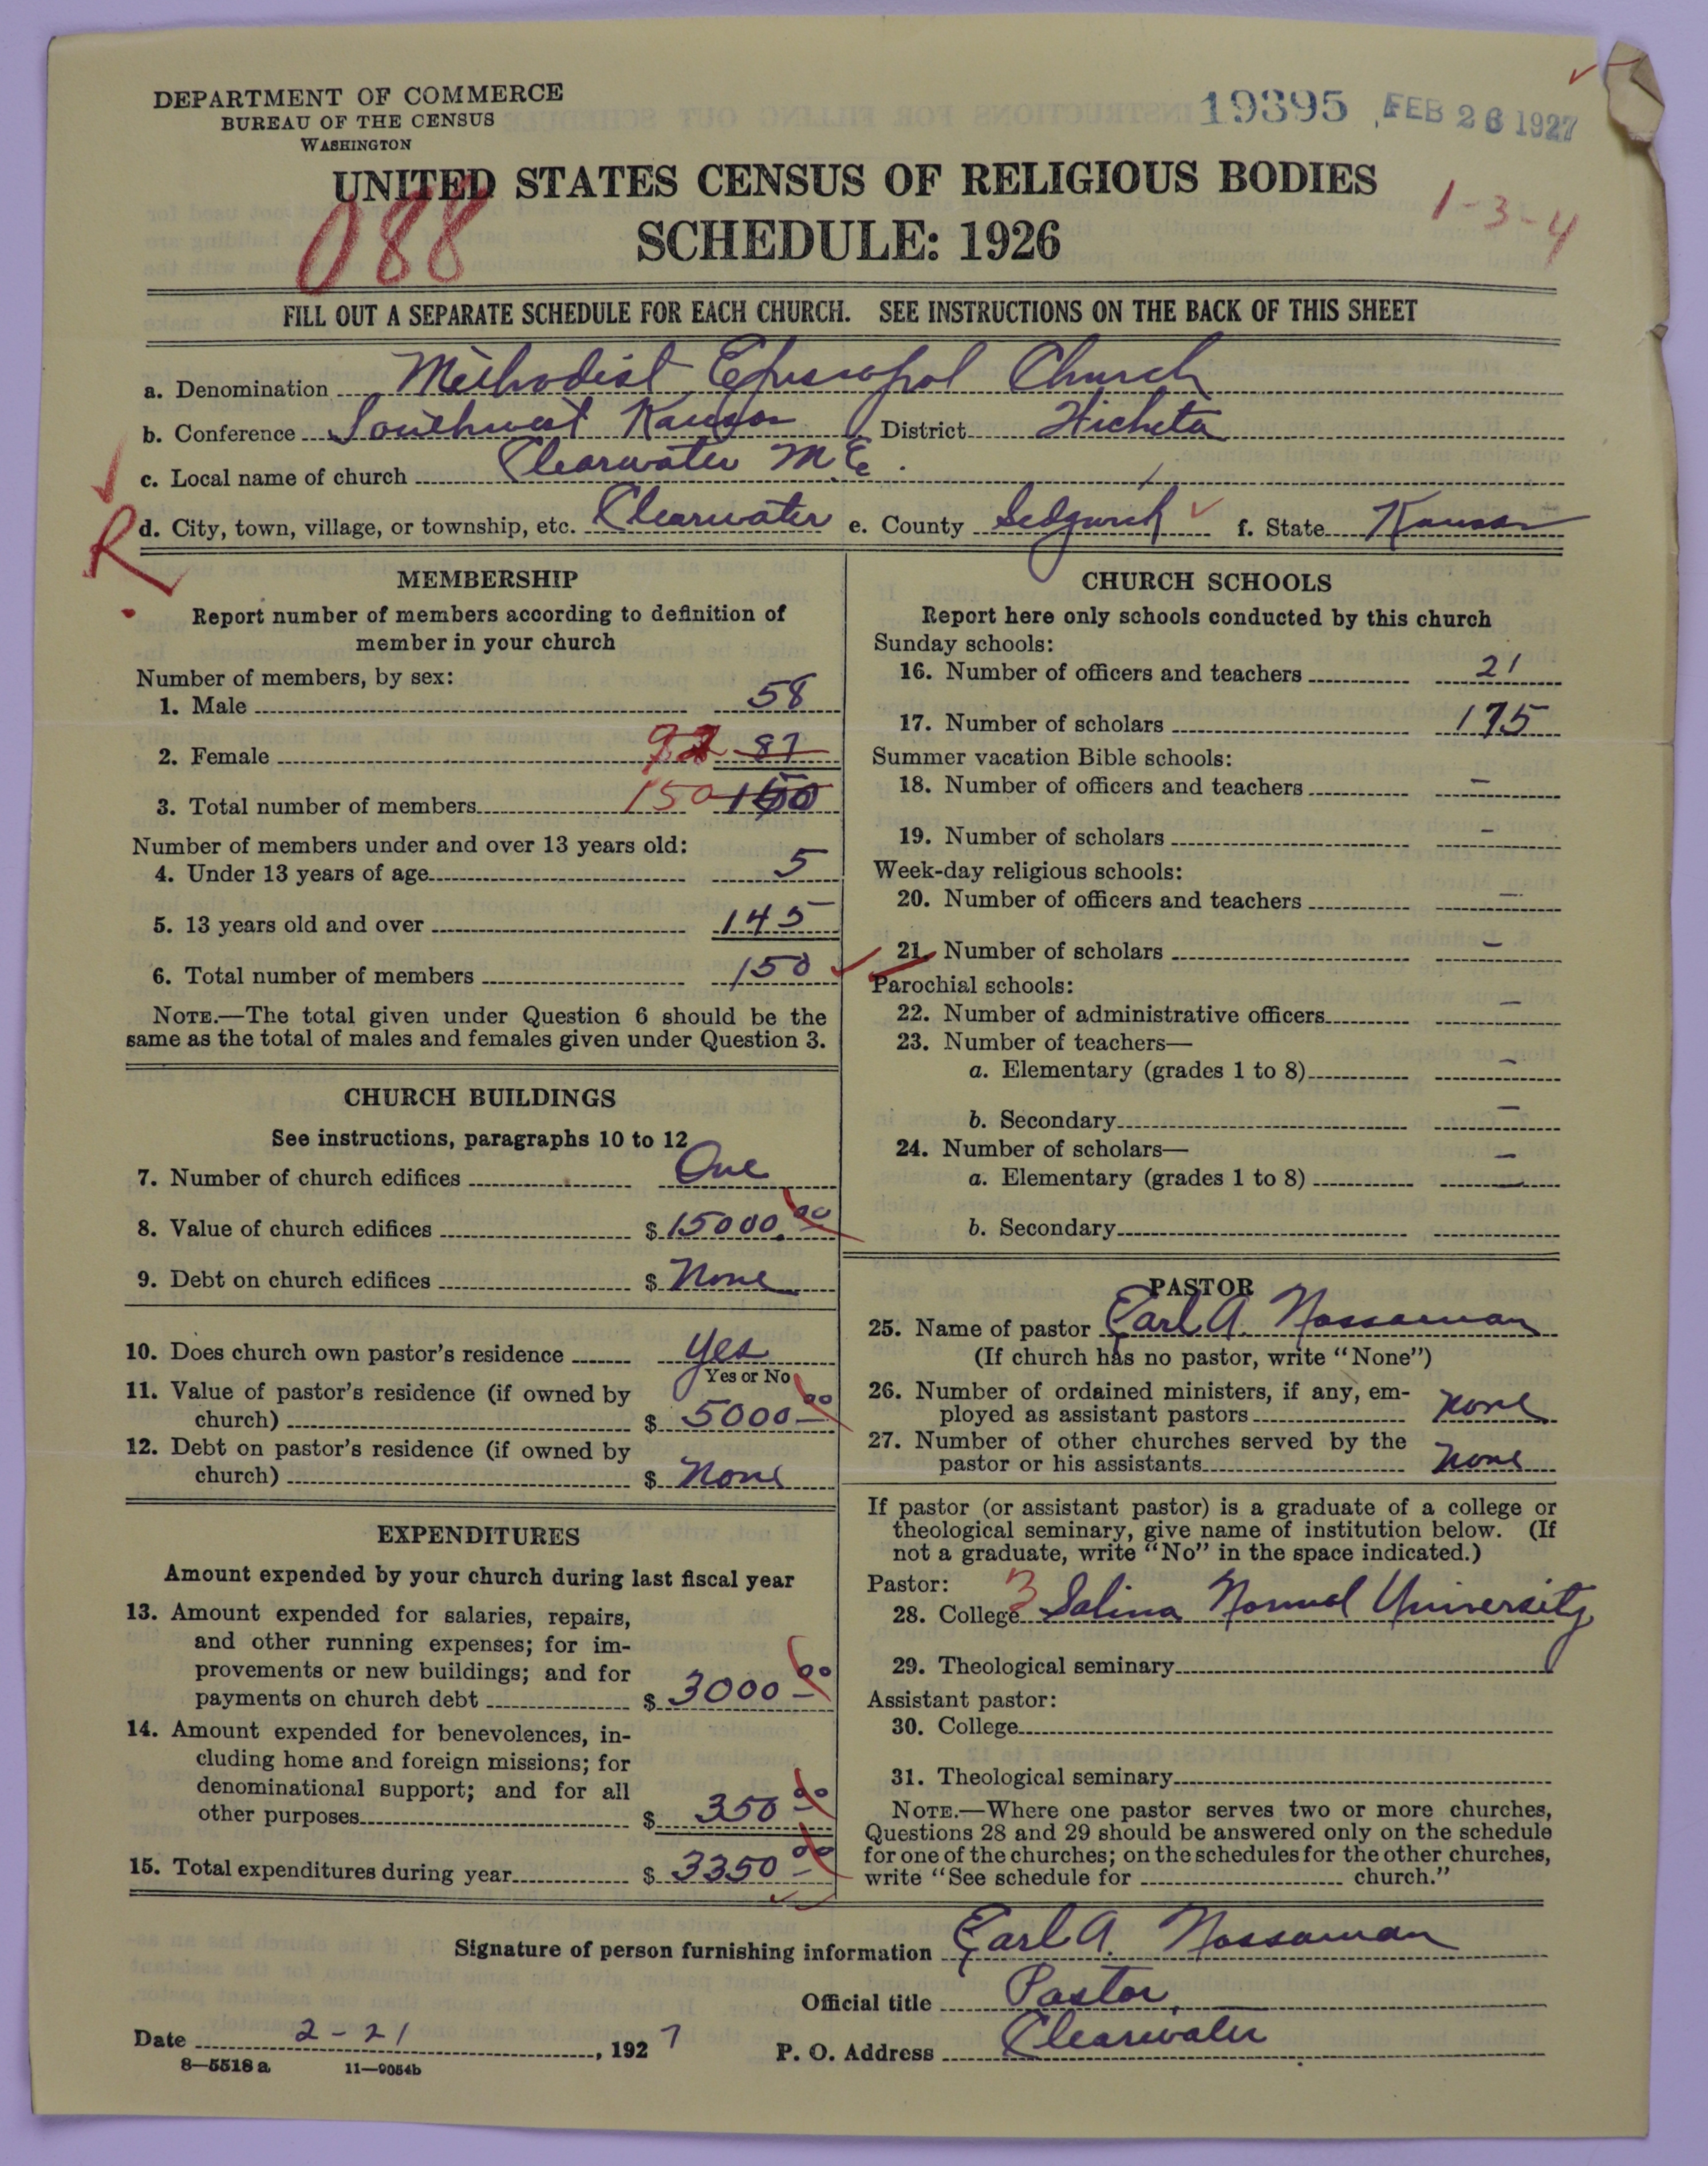 DEPARTMENT OF COMMERCE
BUREAU OF THE CENSUS
WASHINGTON
19395 FEB 26 1927
UNITED STATES CENSUS OF RELIGIOUS BODIES
SCHEDULE: 1926
088
1-3-4
FILL OUT A SEPARATE SCHEDULE FOR EACH CHURCH. SEE INSTRUCTIONS ON THE BACK OF THIS SHEET
a. Denomination Methodist Episcopal Church
b. Conference Southwest Kansas District Wichita
c. Local name of church Clearwater M.E.
R d. City, town, village, or township, etc. Clearwater e. County Sedgwick f. State Kansas
MEMBERSHIP
Report number of members according to definition of
member in your church
Number of members, by sex:
1. Male 58
2. Female 92 87
3. Total number of members 150 150
Number of members under and over 13 years old:
4. Under 13 years of age 5
5. 13 years old and over 145
6. Total number of members 150
NOTE.—The total given under Question 6 should be the
same as the total of males and females given under Question 3.
CHURCH BUILDINGS
See instructions, paragraphs 10 to 12
7. Number of church edifices One
8. Value of church edifices $ 15000.00
9. Debt on church edifices $ None
10. Does church own pastor's residence Yes
Yes or No
11. Value of pastor's residence (if owned by
church) $ 5000 00
12. Debt on pastor's residence (if owned by
church) $ None
EXPENDITURES
Amount expended by your church during last fiscal year
13. Amount expended for salaries, repairs,
and other running expenses; for im-
provements or new buildings; and for
payments on church debt $ 3000 00
14. Amount expended for benevolences, in-
cluding home and foreign missions; for
denominational support; and for all
other purposes $ 350 00
15. Total expenditures during year $ 3350 00
CHURCH SCHOOLS
Report here only schools conducted by this church
Sunday schools:
16. Number of officers and teachers 21
17. Number of scholars 175
Summer vacation Bible schools:
18. Number of officers and teachers –
19. Number of scholars –
Week-day religious schools:
20. Number of officers and teachers –
21. Number of scholars –
Parochial schools:
22. Number of administrative officers –
23. Number of teachers—
a. Elementary (grades 1 to 8) –
b. Secondary –
24. Number of scholars— –
a. Elementary (grades 1 to 8) –
b. Secondary
PASTOR
25. Name of pastor Earl A. Nossaman
(If church has no pastor, write "None")
26. Number of ordained ministers, if any, em-
ployed as assistant pastors none
27. Number of other churches served by the
pastor or his assistants none
If pastor (or assistant pastor) is a graduate of a college or
theological seminary, give name of institution below. (If
not a graduate, write "No" in the space indicated.)
Pastor: 3
28. College Salina Normal University
29. Theological seminary
Assistant pastor:
30. College
31. Theological seminary
NOTE.—Where one pastor serves two or more churches,
Questions 28 and 29 should be answered only on the schedule
for one of the churches; on the schedules for the other churches,
write "See schedule for church."
Signature of person furnishing information Earl A. Nossaman
Official title Pastor,
Date 2-21, 1927
P. O. Address Clearwater
8—5518 a 11—9054b